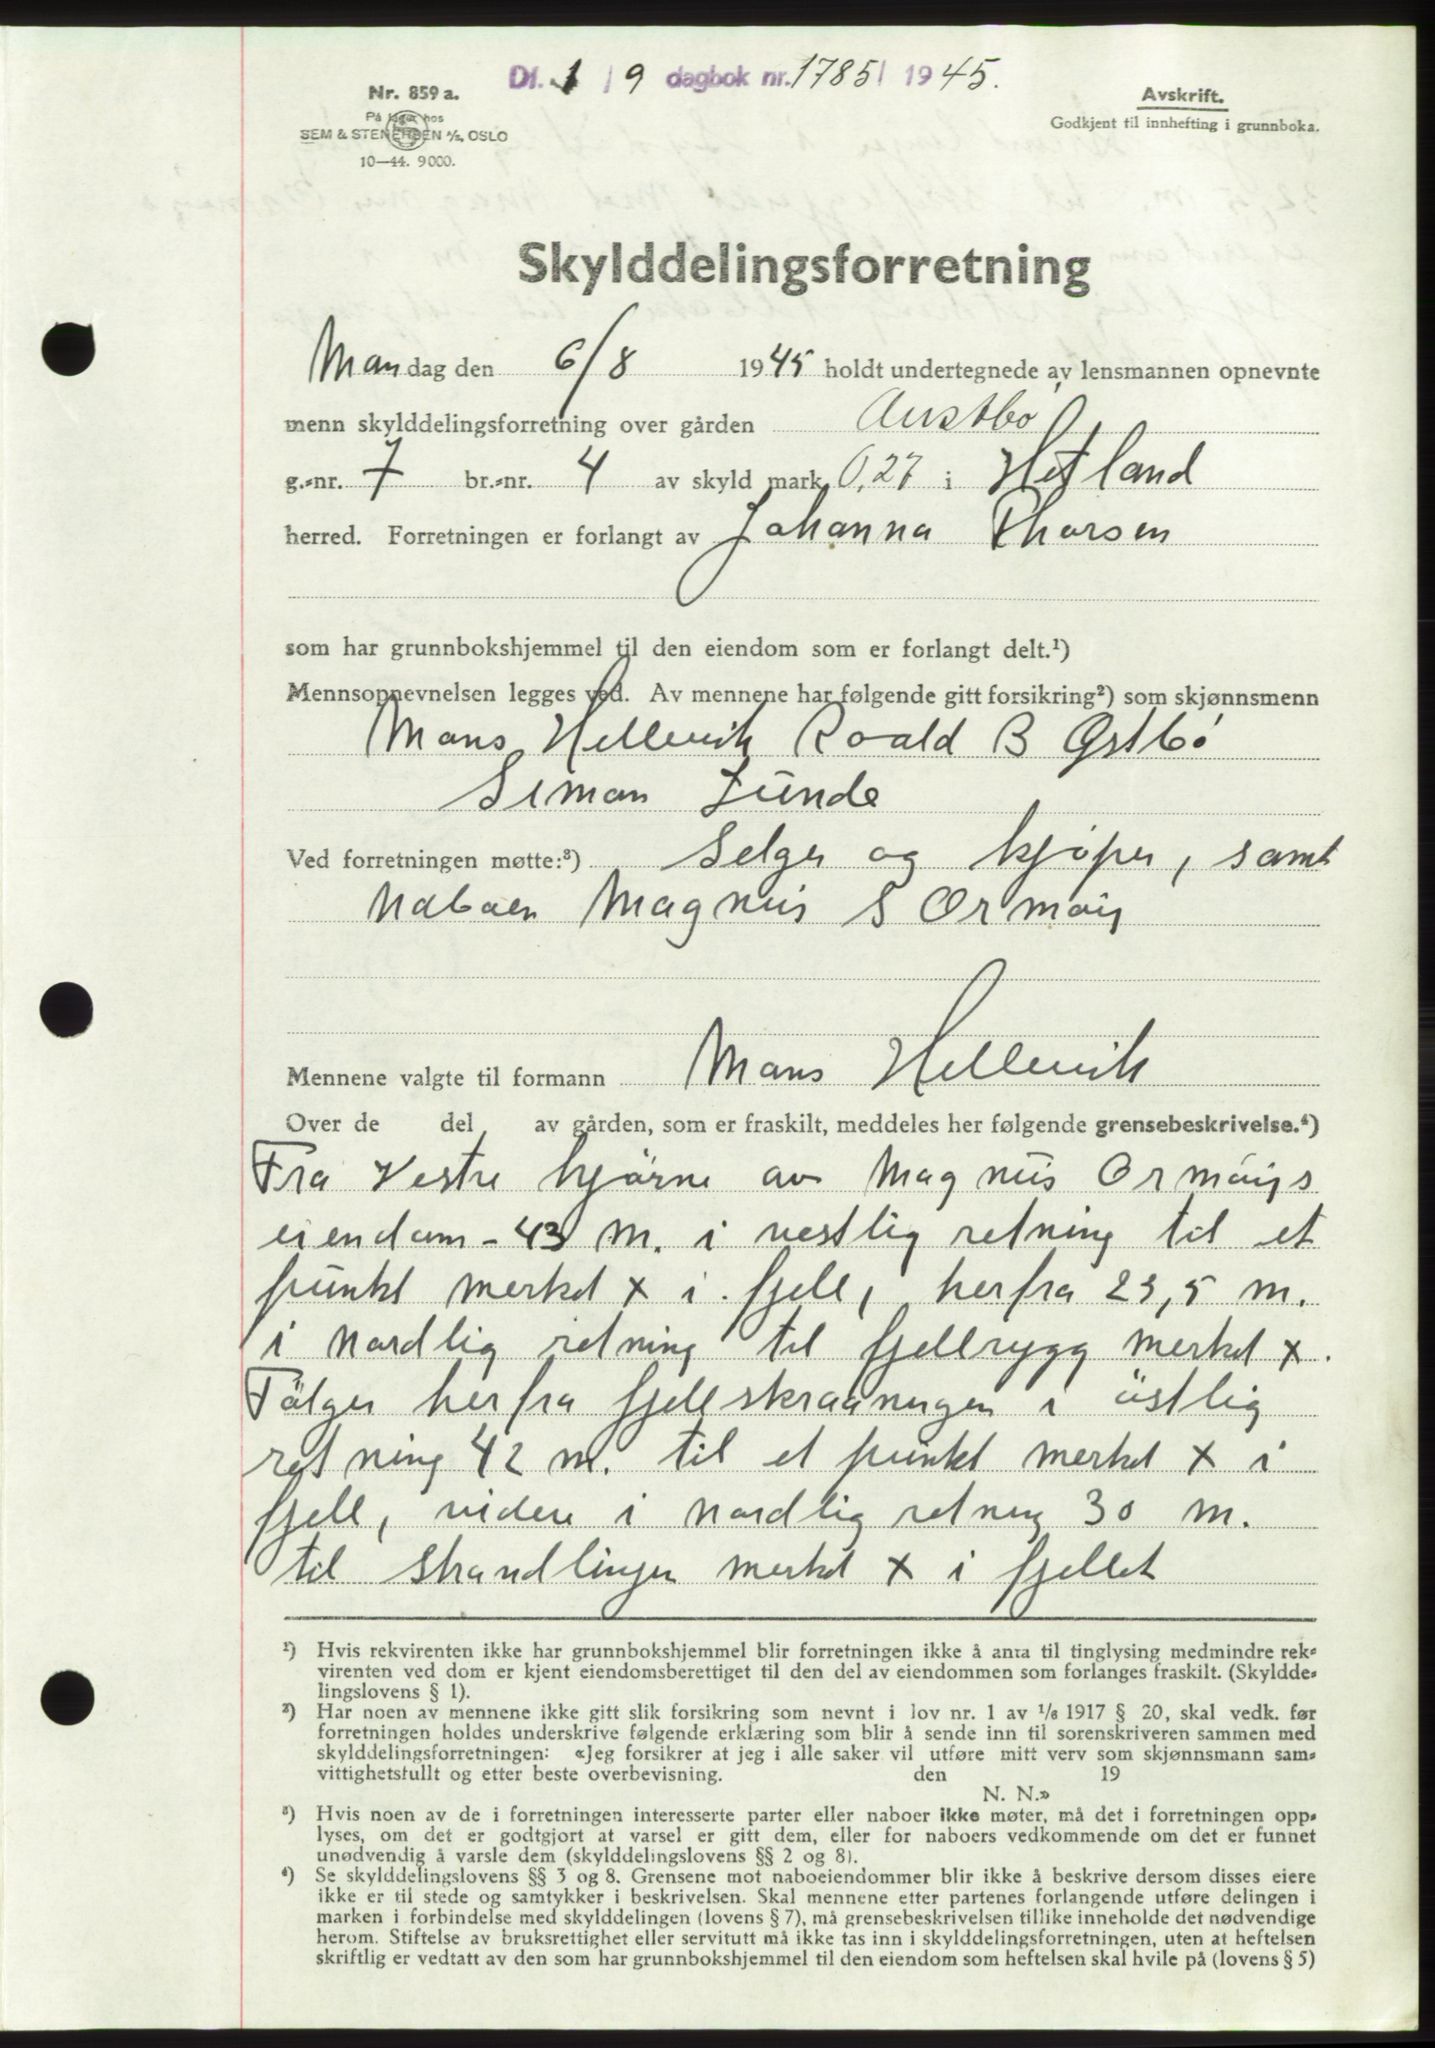 Df. 1 / 9 dagbok nr. 1785 / 1945.
Nr. 859 a.
På lager hos
SEM & STENERSEN A/S, OSLO
10—44. 9000.
Avskrift.
Godkjent til innhefting i grunnboka.
Skylddelingsforretning
Mandag den 6/8 1945 holdt undertegnede av lensmannen opnevnte
menn skylddelingsforretning over gården Austbø
g.-nr. 7 br.-nr. 4 av skyld mark 0,27 i Hetland
herred. Forretningen er forlangt av Johanna Thorsen
som har grunnbokshjemmel til den eiendom som er forlangt delt.¹)
Mennsopnevnelsen legges ved. Av mennene har følgende gitt forsikring²) som skjønnsmenn
Mans Hellevik Roald B Østbø
Simon Lunde
Ved forretningen møtte:³) Selger og kjøper, samt
Naboen Magnus S Ormøy
Mennene valgte til formann Mans Hellevik
Over de del av gården, som er fraskilt, meddeles her følgende grensebeskrivelse.⁴)
Fra Vestre hjørne av Magnus Ormøys
eiendom - 43 m. i vestlig retning til et
punkt merket x i fjell, herfra 23,5 m.
i nordlig retning til fjellrygg merket x.
Følger herfra fjellskraaningen i östlig
retning 42 m. til et punkt merket x i
fjell, videre i nordlig retning 30 m.
til strandlinjen merket x i fjellet
¹) Hvis rekvirenten ikke har grunnbokshjemmel blir forretningen ikke å anta til tinglysing medmindre rek-
virenten ved dom er kjent eiendomsberettiget til den del av eiendommen som forlanges fraskilt. (Skyldde-
lingslovens § 1).
²) Har noen av mennene ikke gitt slik forsikring som nevnt i lov nr. 1 av 1/6 1917 § 20, skal vedk. før
forretningen holdes underskrive følgende erklæring som blir å sende inn til sorenskriveren sammen med
skylddelingsforretningen: «Jeg forsikrer at jeg i alle saker vil utføre mitt verv som skjønnsmann sam-
vittighetsfullt og etter beste overbevisning. den 19
N. N.»
³) Hvis noen av de i forretningen interesserte parter eller naboer ikke møter, må det i forretningen opp-
lyses, om det er godtgjort at varsel er gitt dem, eller for naboers vedkommende om det er funnet
unødvendig å varsle dem (skylddelingslovens §§ 2 og 8).
⁴) Se skylddelingslovens §§ 3 og 8. Grensene mot naboeiendommer blir ikke å beskrive dersom disses eiere
ikke er til stede og samtykker i beskrivelsen. Skal mennene etter partenes forlangende utføre delingen i
marken i forbindelse med skylddelingen (lovens § 7), må grensebeskrivelsen tillike inneholde det nødvendige
herom. Stiftelse av bruksrettighet eller servitutt må ikke tas inn i skylddelingsforretningen, uten at heftelsen
skriftlig er vedtatt av den som har grunnbokshjemmel til den eiendom som heftelsen skal hvile på (lovens § 5)